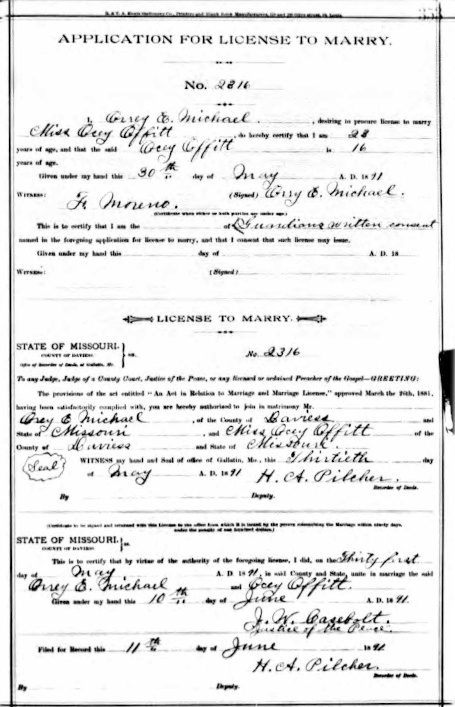 APPLICATION FOR LICENSE TO MARRY.
No. 2316
I, Orrey E. Michael, desiring to procure license to marry
Miss Ocey Offitt, do hereby certify that I am 23
years of age, and that the said Ocey Offitt is 16
years of age.
Given under my hand this 30th day of May A. D. 1891
WITNESS: (Signed) Orry E. Michael.
Fr Moreno.
(Certificate when either or both parties are under age.)
This is to certify that I am the of Guardians written consent
named in the foregoing application for license to marry, and that I consent that such license may issue.
Given under my hand this day of A. D. 18
WITNESS: (Signed)
LICENSE TO MARRY.
STATE OF MISSOURI. } ss.
COUNTY OF DAVIESS
Office of Recorder of Deeds, at Gallatin, Mo.
No. 2316
To any Judge, Judge of a County Court, Justice of the Peace, or any licensed or ordained Preacher of the Gospel—GREETING:
The provisions of the act entitled "An Act in Relation to Marriage and Marriage License," approved March the 26th, 1881,
having been satisfactorily complied with, you are hereby authorized to join in matrimony Mr.
Orey E Michael, of the County of Daviess and
State of Missouri, and Miss Ocey Offitt of the
County of Daviess and State of Missouri.
Seal WITNESS my hand and Seal of office of Gallatin, Mo., this Thirtieth day
of May A. D. 1891 H. A. Pilcher.
Recorder of Deeds.
By Deputy.
(Certificate to be signed and returned with this License to the office from which it is issued by the person solemnizing the Marriage within ninety days,
under the penalty of one hundred dollars.)
STATE OF MISSOURI. } ss.
COUNTY OF DAVIESS
This is to certify that by virtue of the authority of the foregoing license, I did, on the Thirty first
day of May A. D. 1891, in said County and State, unite in marriage the said
Orrey E. Michael and Ocey Offitt.
Given under my hand this 10th day of June A. D. 1891.
J. W. Casebolt.
Justice of the Peace.
Filed for Record this 11th day of June 1891
H. A. Pilcher.
Recorder of Deeds.
By Deputy.